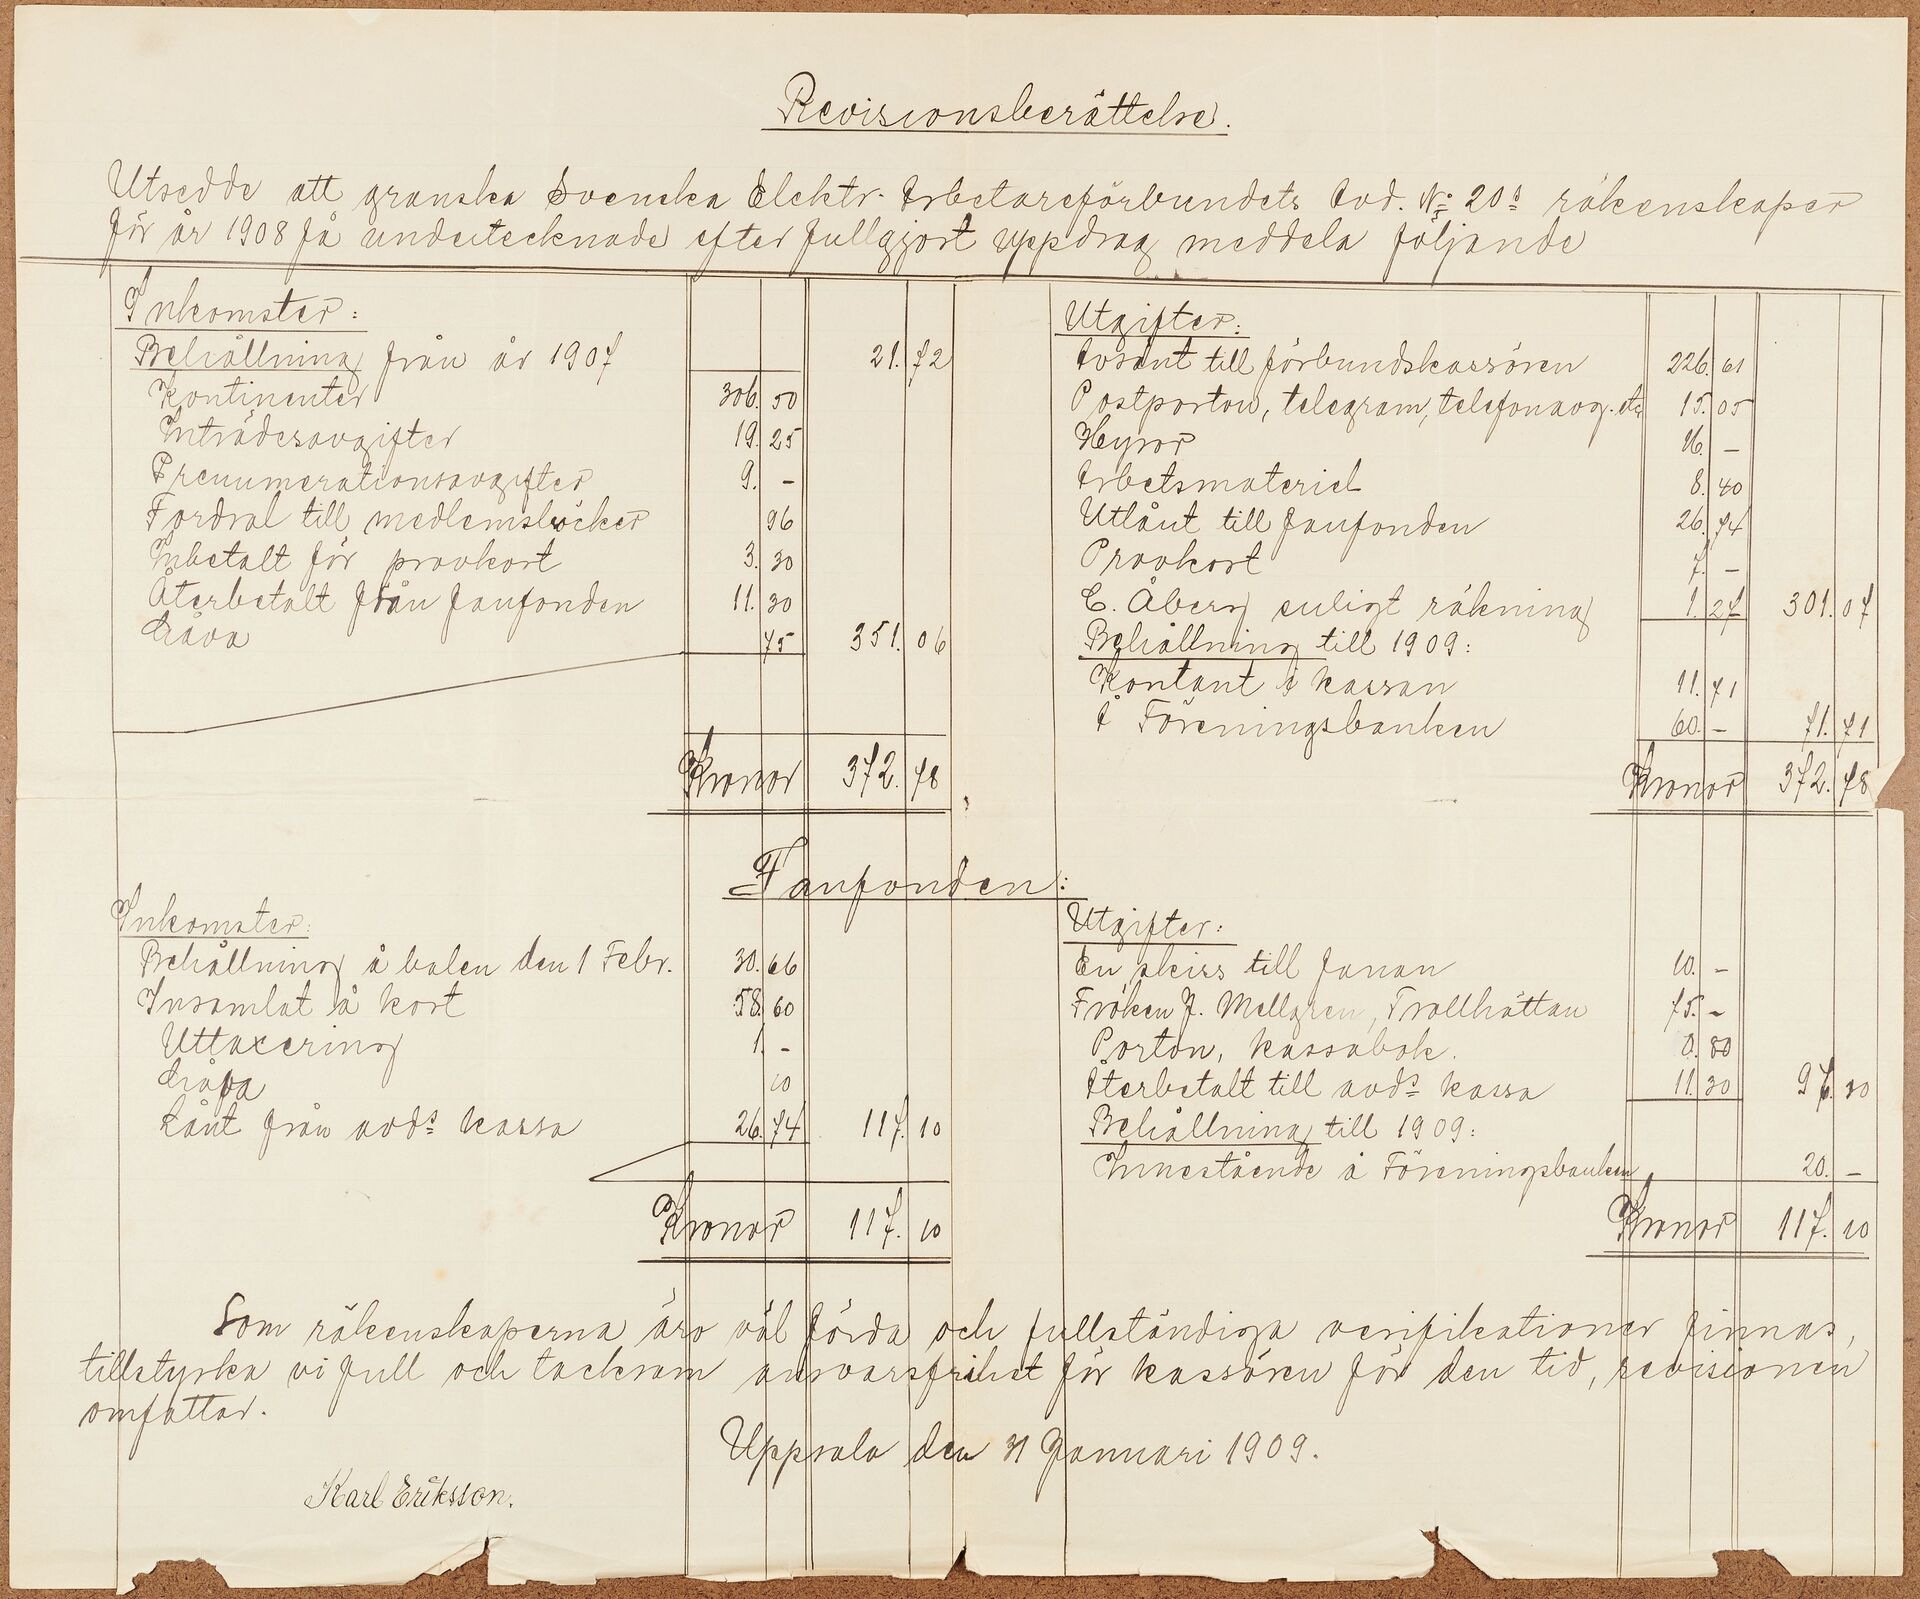 Revisionsberättelse.
Utsedde att granska Svenska Elektr. Arbetareförbundets Avd. No 20s räkenskaper
för år 1908 få undertecknade efter fullgjort uppdrag meddela följande
Inkomster:
Behållning från år 1907 21.72
Kontinenter 306.50
Inträdesavgifter 19.25
Prenumerationsavgifter 9. -
Fordral till medlemsböcker 96
Inbetalt för provkort 3.30
Återbetalt från fanfonden 11.30
Gåva 75 351.06
Kronor 372.78
Utgifter:
Avsänt till förbundskassören 226.61
Postporton, telegram, telefonavg. etc 15.05
Hyror 16. -
Arbetsmateriel 8.40
Utlånt till fanfonden 26.74
Provkort 7. -
C. Åberg enligt räkning 1.27 301.07
Behållning till 1909:
Kontant i kassan 11.71
I Föreningsbanken 60. - 71.71
Kronor 372.78
Fanfonden:
Inkomster:
Behållning å balen den 1 Febr. 30.66
Insamlat å kort 58.60
Uttaxering 1. -
Gåva 10
Lånt från avds kassa 26.74 117.10
Kronor 117.10
Utgifter:
En skiss till fanan 10. -
Fröken J. Mellgren, Trollhättan 75. -
Porton, kassabok. 0.80
Återbetalt till avds kassa 11.30 97.10
Behållning till 1909:
Innestående å Föreningsbanken 20. -
Kronor 117.10
Som räkenskaperna äro väl förda och fullständiga verifikationer finnas,
tillstyrka vi full och tacksam ansvarsfrihet för kassören för den tid, revisionen
omfattar.
Uppsala den 31 Januari 1909.
Karl Eriksson.